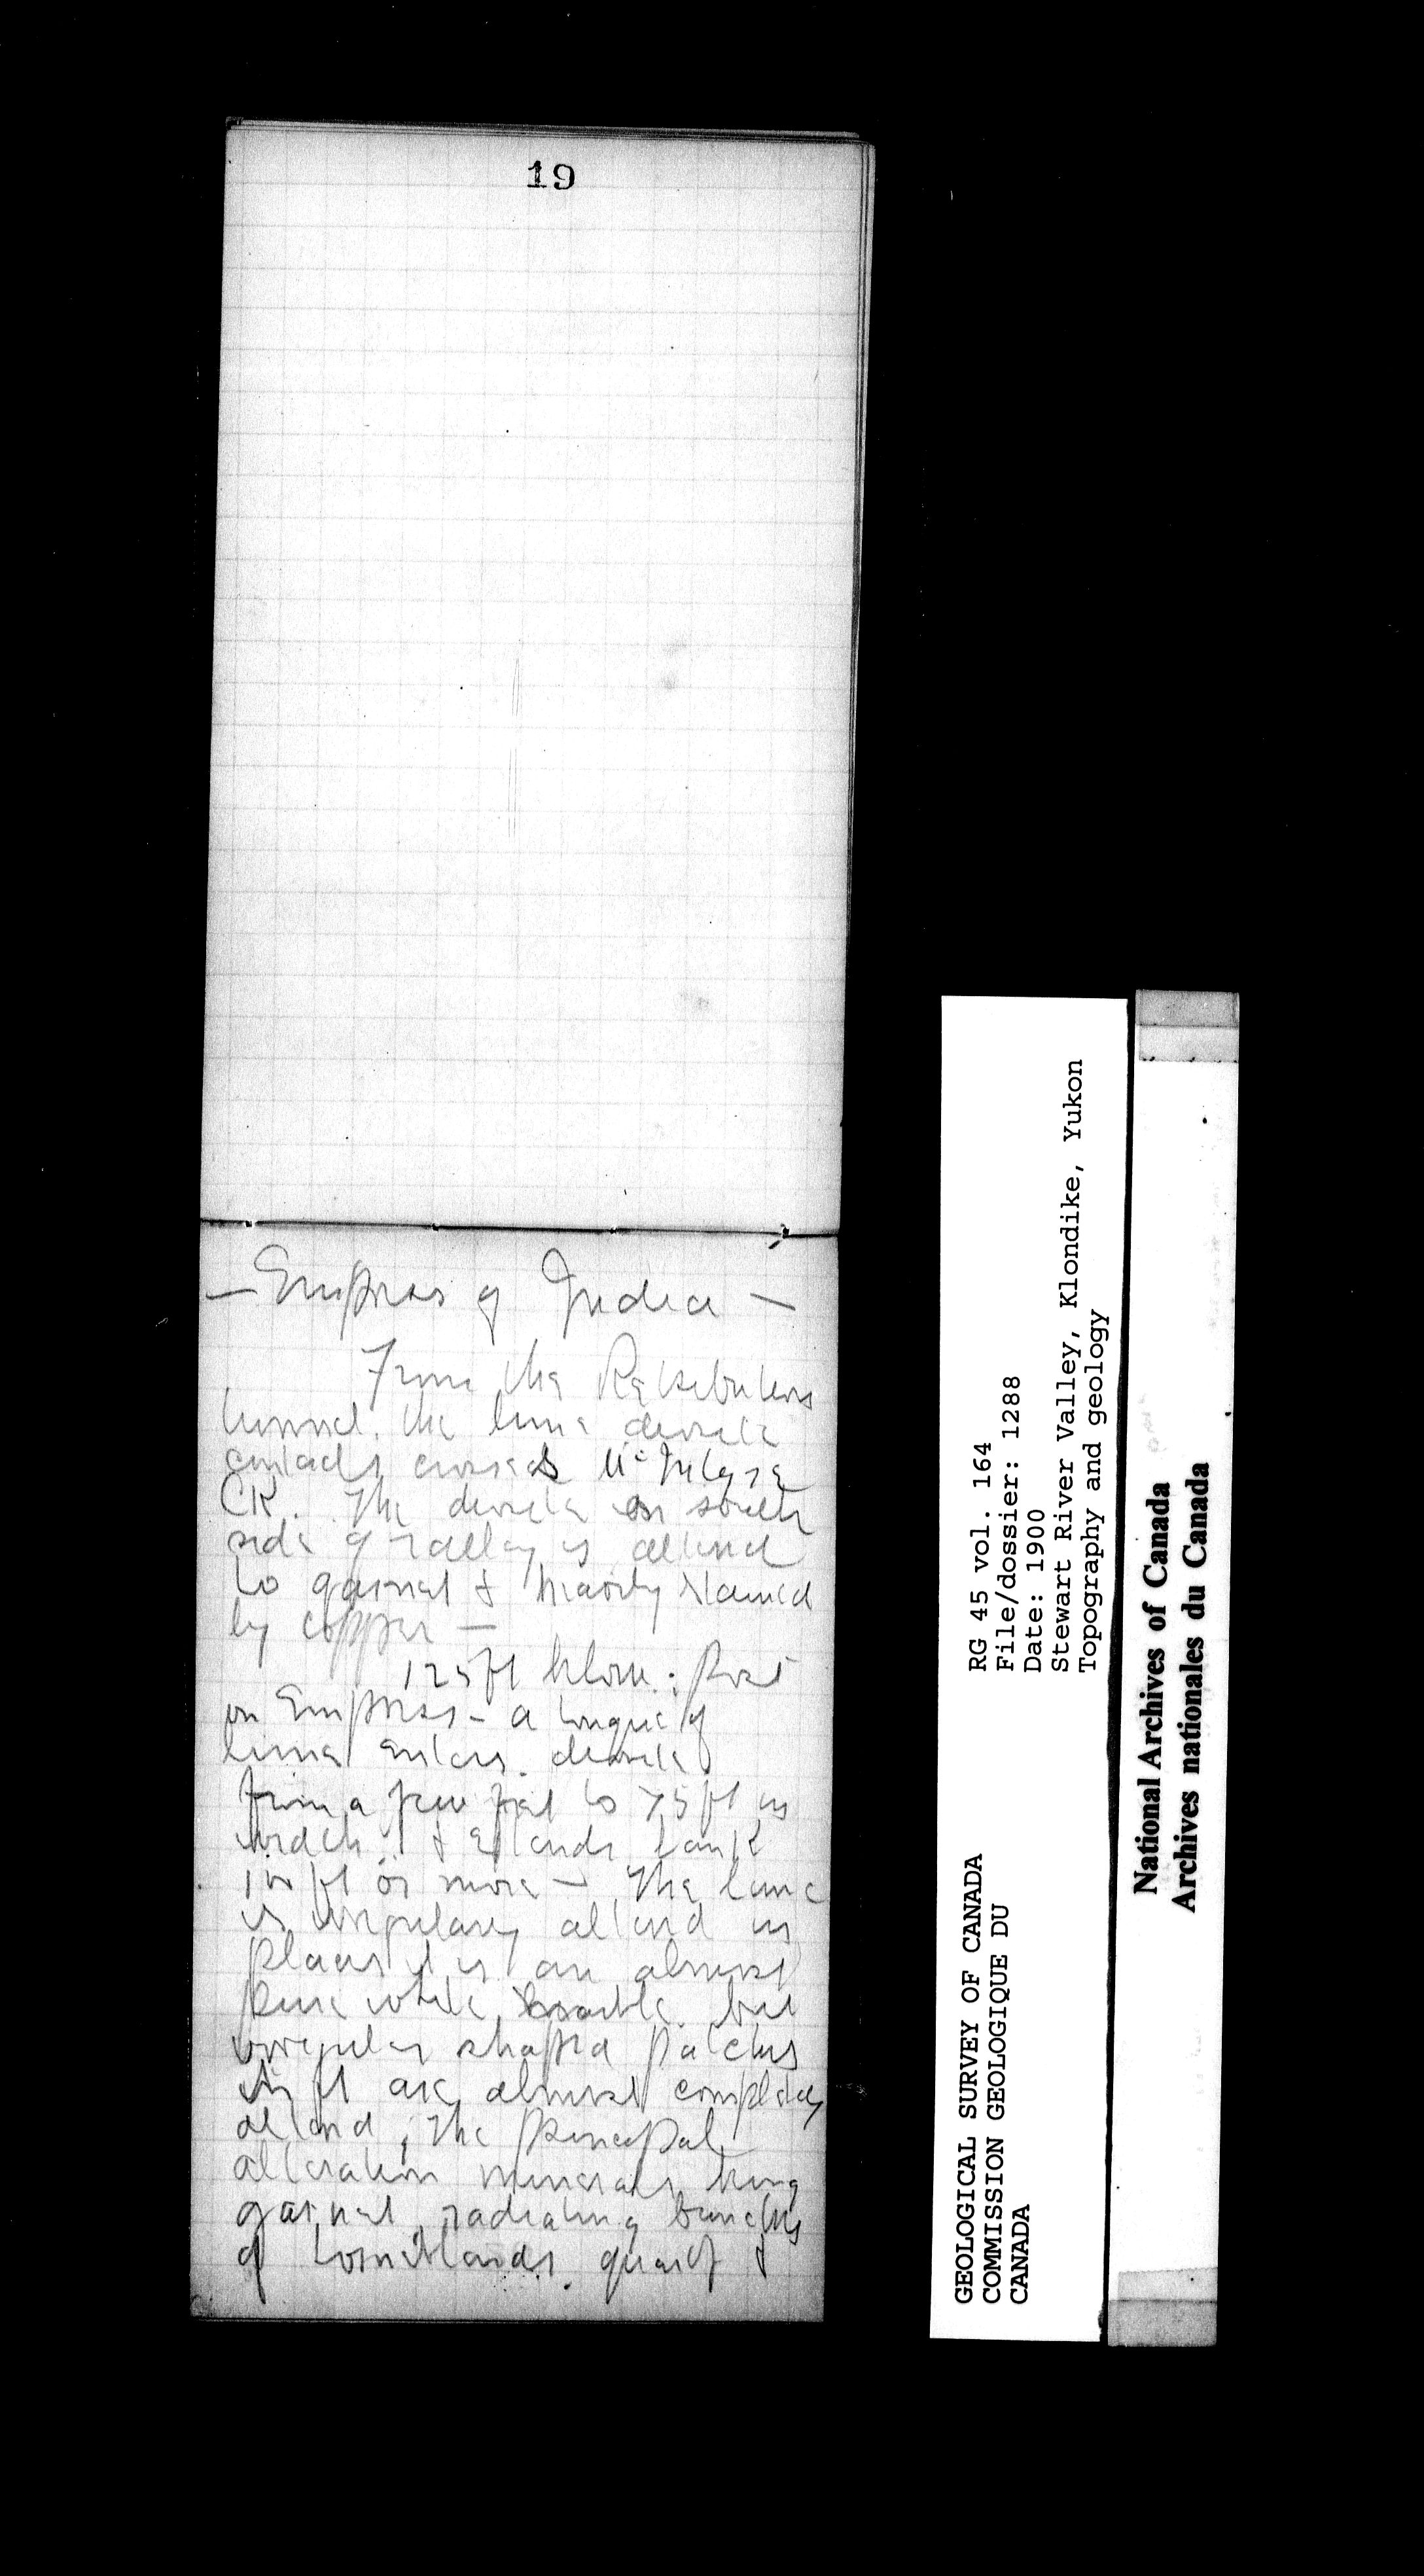 19
— Empress of India —
From the Retribution
tunnel. the lime diorite
contact crosses McIntyre
CK. The diorite on south
side of valley is altered
to garnet & heavily stained
by copper —
125 ft below Post
on Empress - a tongue of
lime enters diorite
from a few feet to 75 ft in
width & extends back
100 ft or more — The lime
is irregularly altered in
places it is an almost
pure white marble but
irregular shaped patches
in it are almost completely
altered, the principal
alteration minerals being
garnet, radiating bunches
of hornblende, quartz &
GEOLOGICAL SURVEY OF CANADA
COMMISSION GEOLOGIQUE DU
CANADA
RG 45 vol. 164
File/dossier: 1288
Date: 1900
Stewart River Valley, Klondike, Yukon
Topography and geology
National Archives of Canada
Archives nationales du Canada